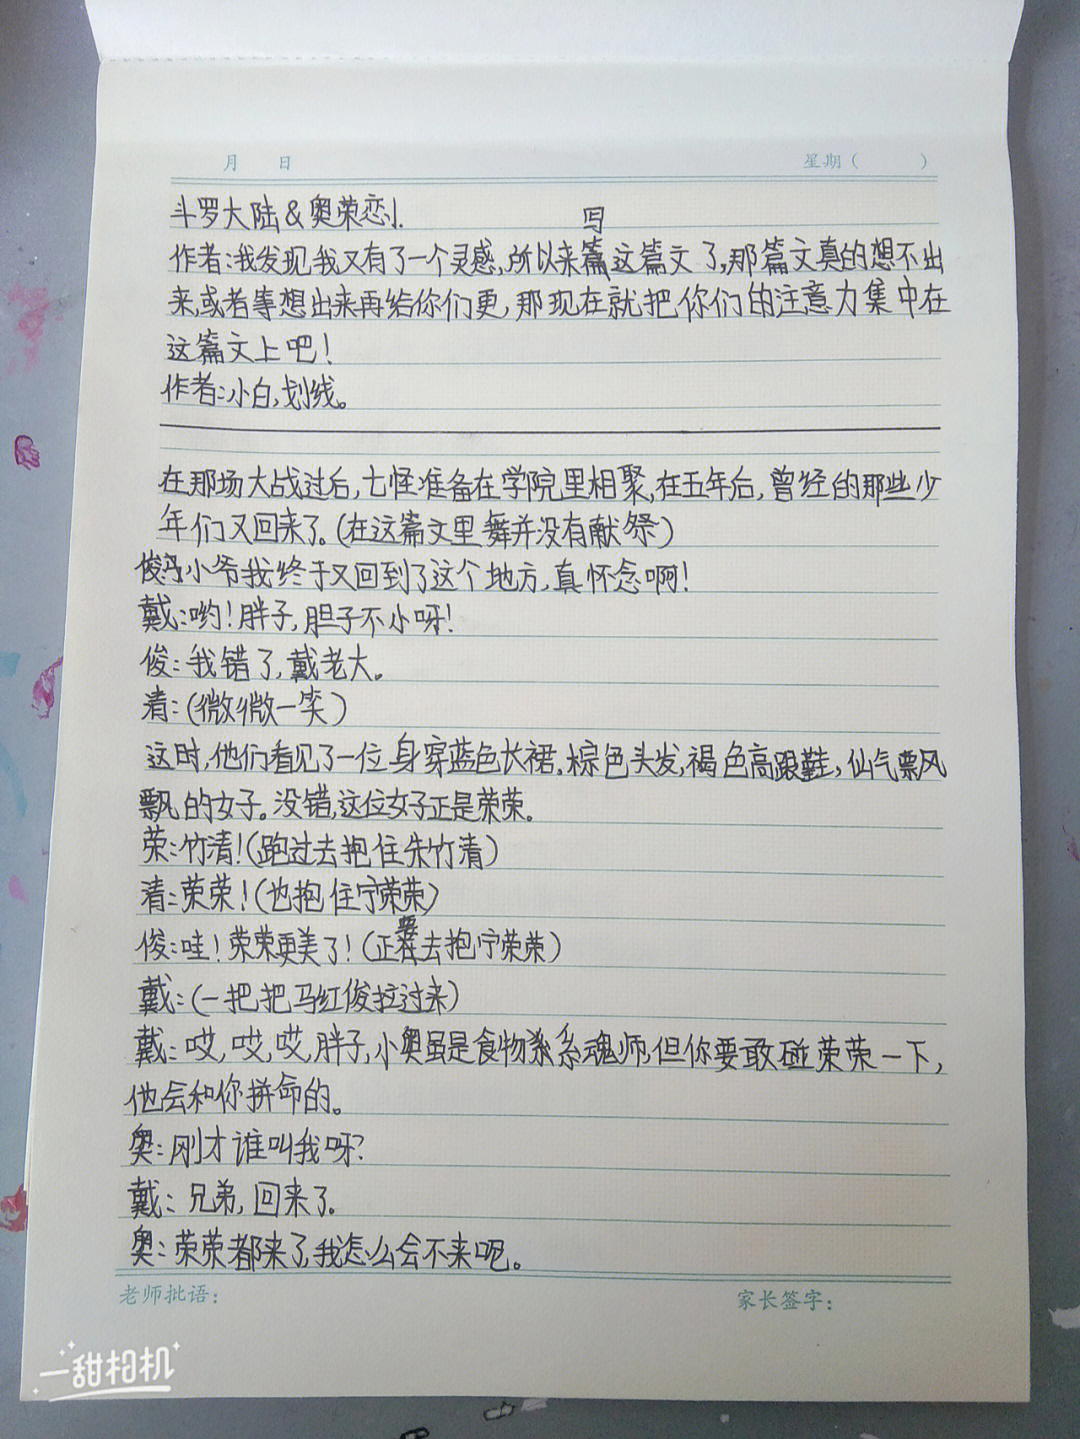 月 日 星期( )
斗罗大陆&奥荣恋1.
写
作者:我发现我又有了一个灵感,所以来篇这篇文了,那篇文真的想不出
来,或者等想出来再给你们更,那现在就把你们的注意力集中在
这篇文上吧!
作者:小白,划线。
在那场大战过后,七怪准备在学院里相聚,在五年后,曾经的那些少
年们又回来了。(在这篇文里舞并没有献祭)
俊:小爷我终于又回到了这个地方,真怀念啊!
戴:哟!胖子,胆子不小呀!
俊:我错了,戴老大。
清:(微微一笑)
这时,他们看见了一位身穿蓝色长裙,棕色头发,褐色高跟鞋,仙气飘风
飘的女子。没错,这位女子正是荣荣。
荣:竹清!(跑过去抱住朱竹清)
清:荣荣!(也抱住宁荣荣)
俊:哇!荣荣更美了!(正要去抱宁荣荣)
戴:(一把把马红俊拉过来)
戴:哎,哎,哎,胖子,小奥虽是食物系系魂师,但你要敢碰荣荣一下,
他会和你拼命的。
奥:刚才谁叫我呀?
戴:兄弟,回来了。
奥:荣荣都来了,我怎么会不来呢。
老师批语: 家长签字:
一甜相机